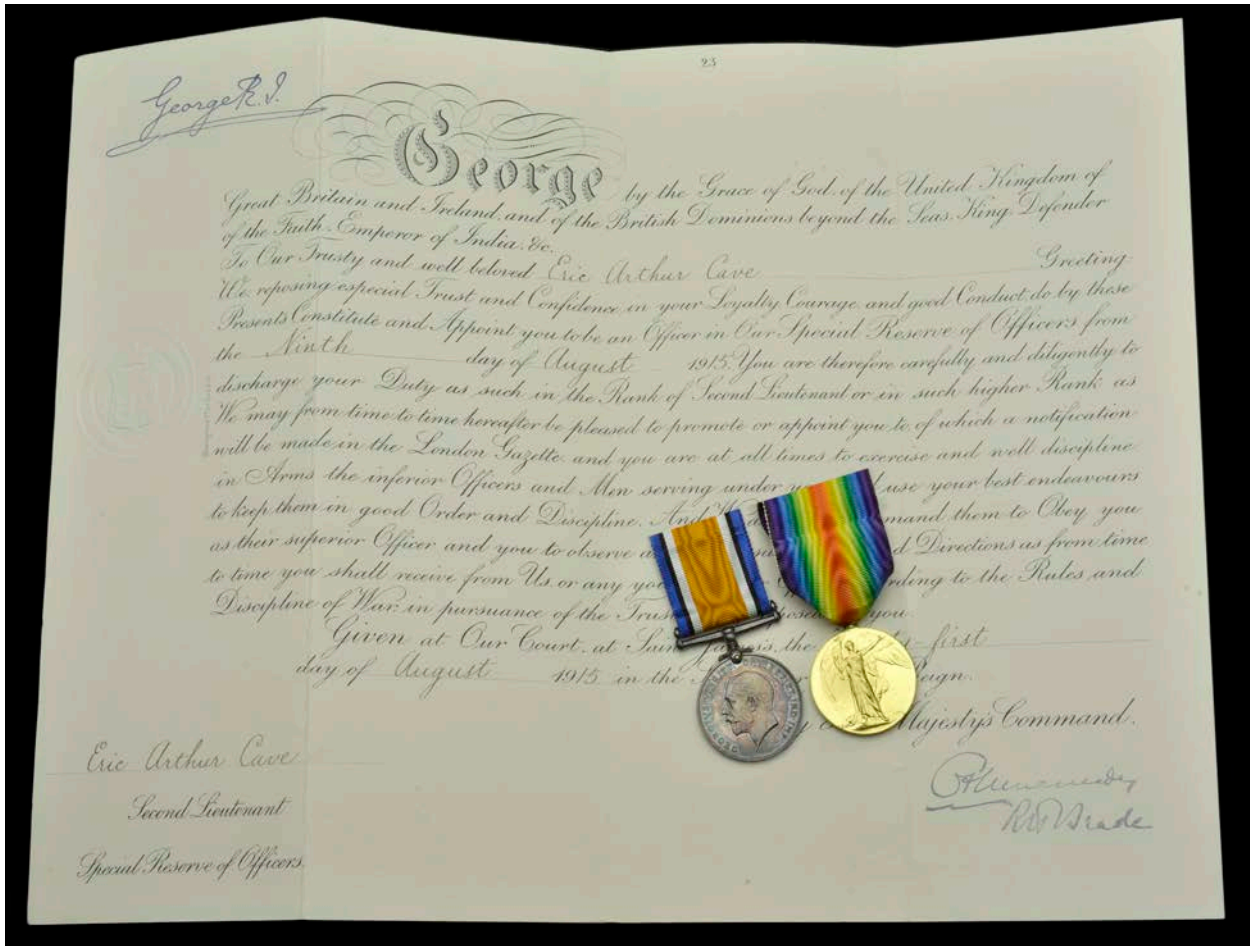 George R.I.
25
George by the Grace of God, of the United Kingdom of
Great Britain and Ireland, and of the British Dominions beyond the Seas, King, Defender
of the Faith, Emperor of India, &c.
To Our Trusty and well beloved Eric Arthur Cave Greeting:
We, reposing especial Trust and Confidence in your Loyalty, Courage, and good Conduct, do by these
Presents Constitute and Appoint you to be an Officer in Our Special Reserve of Officers from
the Ninth day of August 1915. You are therefore carefully and diligently to
discharge your Duty as such in the Rank of Second Lieutenant or in such higher Rank as
We may from time to time hereafter be pleased to promote or appoint you to of which a notification
will be made in the London Gazette, and you are at all times to exercise and well discipline
in Arms the inferior Officers and Men serving under use your best endeavours
to keep them in good Order and Discipline. And them to Obey you
as their superior Officer and you to observe Directions as from time
to time you shall receive from Us, or any to the Rules and
Discipline of War, in pursuance of the you
Given at Our Court, at the first
day of August 1915 in the
Majesty's Command.
Eric Arthur Cave
Second Lieutenant
Special Reserve of Officers.